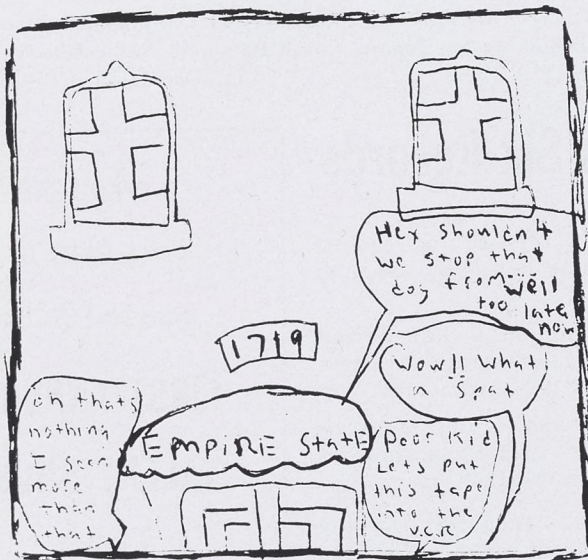 Hey shouldn't
we stop that
dog from... well
too late
now
1719
Wow!! What
a Spat
oh thats
nothing
I seen
more
than
that
EMPIRE StatE
Poor Kid
Lets put
this tape
into the
V.C.R